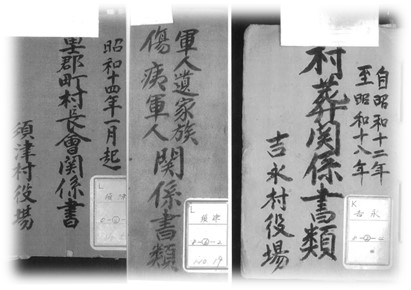 昭和十四年一月起
里郡町村長會関係書
須津村役場
軍人遺家族
傷痍軍人関係書類
L
須津
自昭和十二年
至昭和十八年
村葬関係書類
吉永村役場
K
吉永